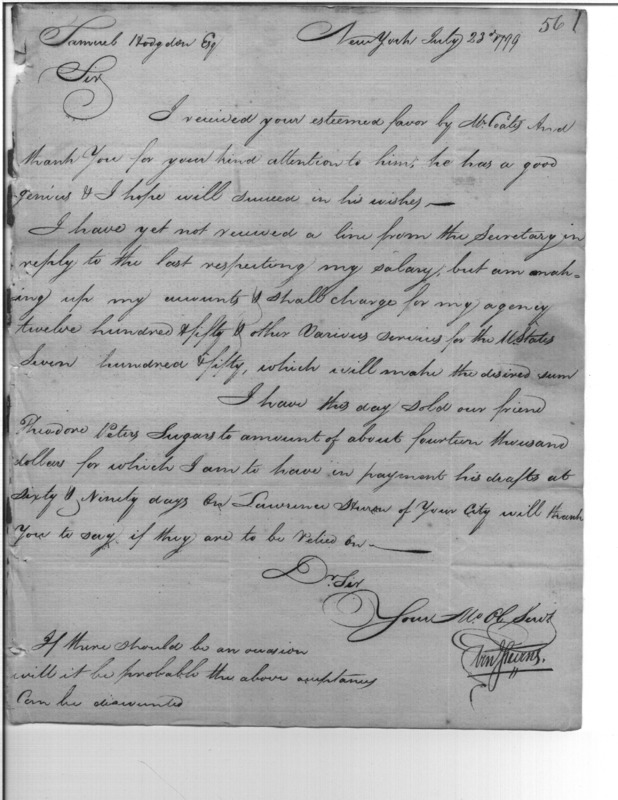 561
Samuel Hodgdon Esq New York July 23d 1799
Sir
I received your esteemed favor by Mr Coats And
thank You for your kind attention to him, he has a good
genius & I hope will succeed in his wishes —
I have yet not received a line from the Secretary in
reply to the last respecting my salary, but am mak-
ing up my accounts & shall charge for my agency
twelve hundred & fifty & other Various services for the U States
Seven hundred & fifty, which will make the desired sum
I have this day sold our friend
Theodore Peters Sugars to amount of about fourteen thousand
dollars for which I am to have in payment his drafts at
sixty & Ninety days on Lawrence of Your City will thank
You to say if they are to be relied on —
Dr Sir
Your Mo Ob Servt
Eben Stevens.
If there should be an occasion
will it be probable the above acceptances
Can be discounted